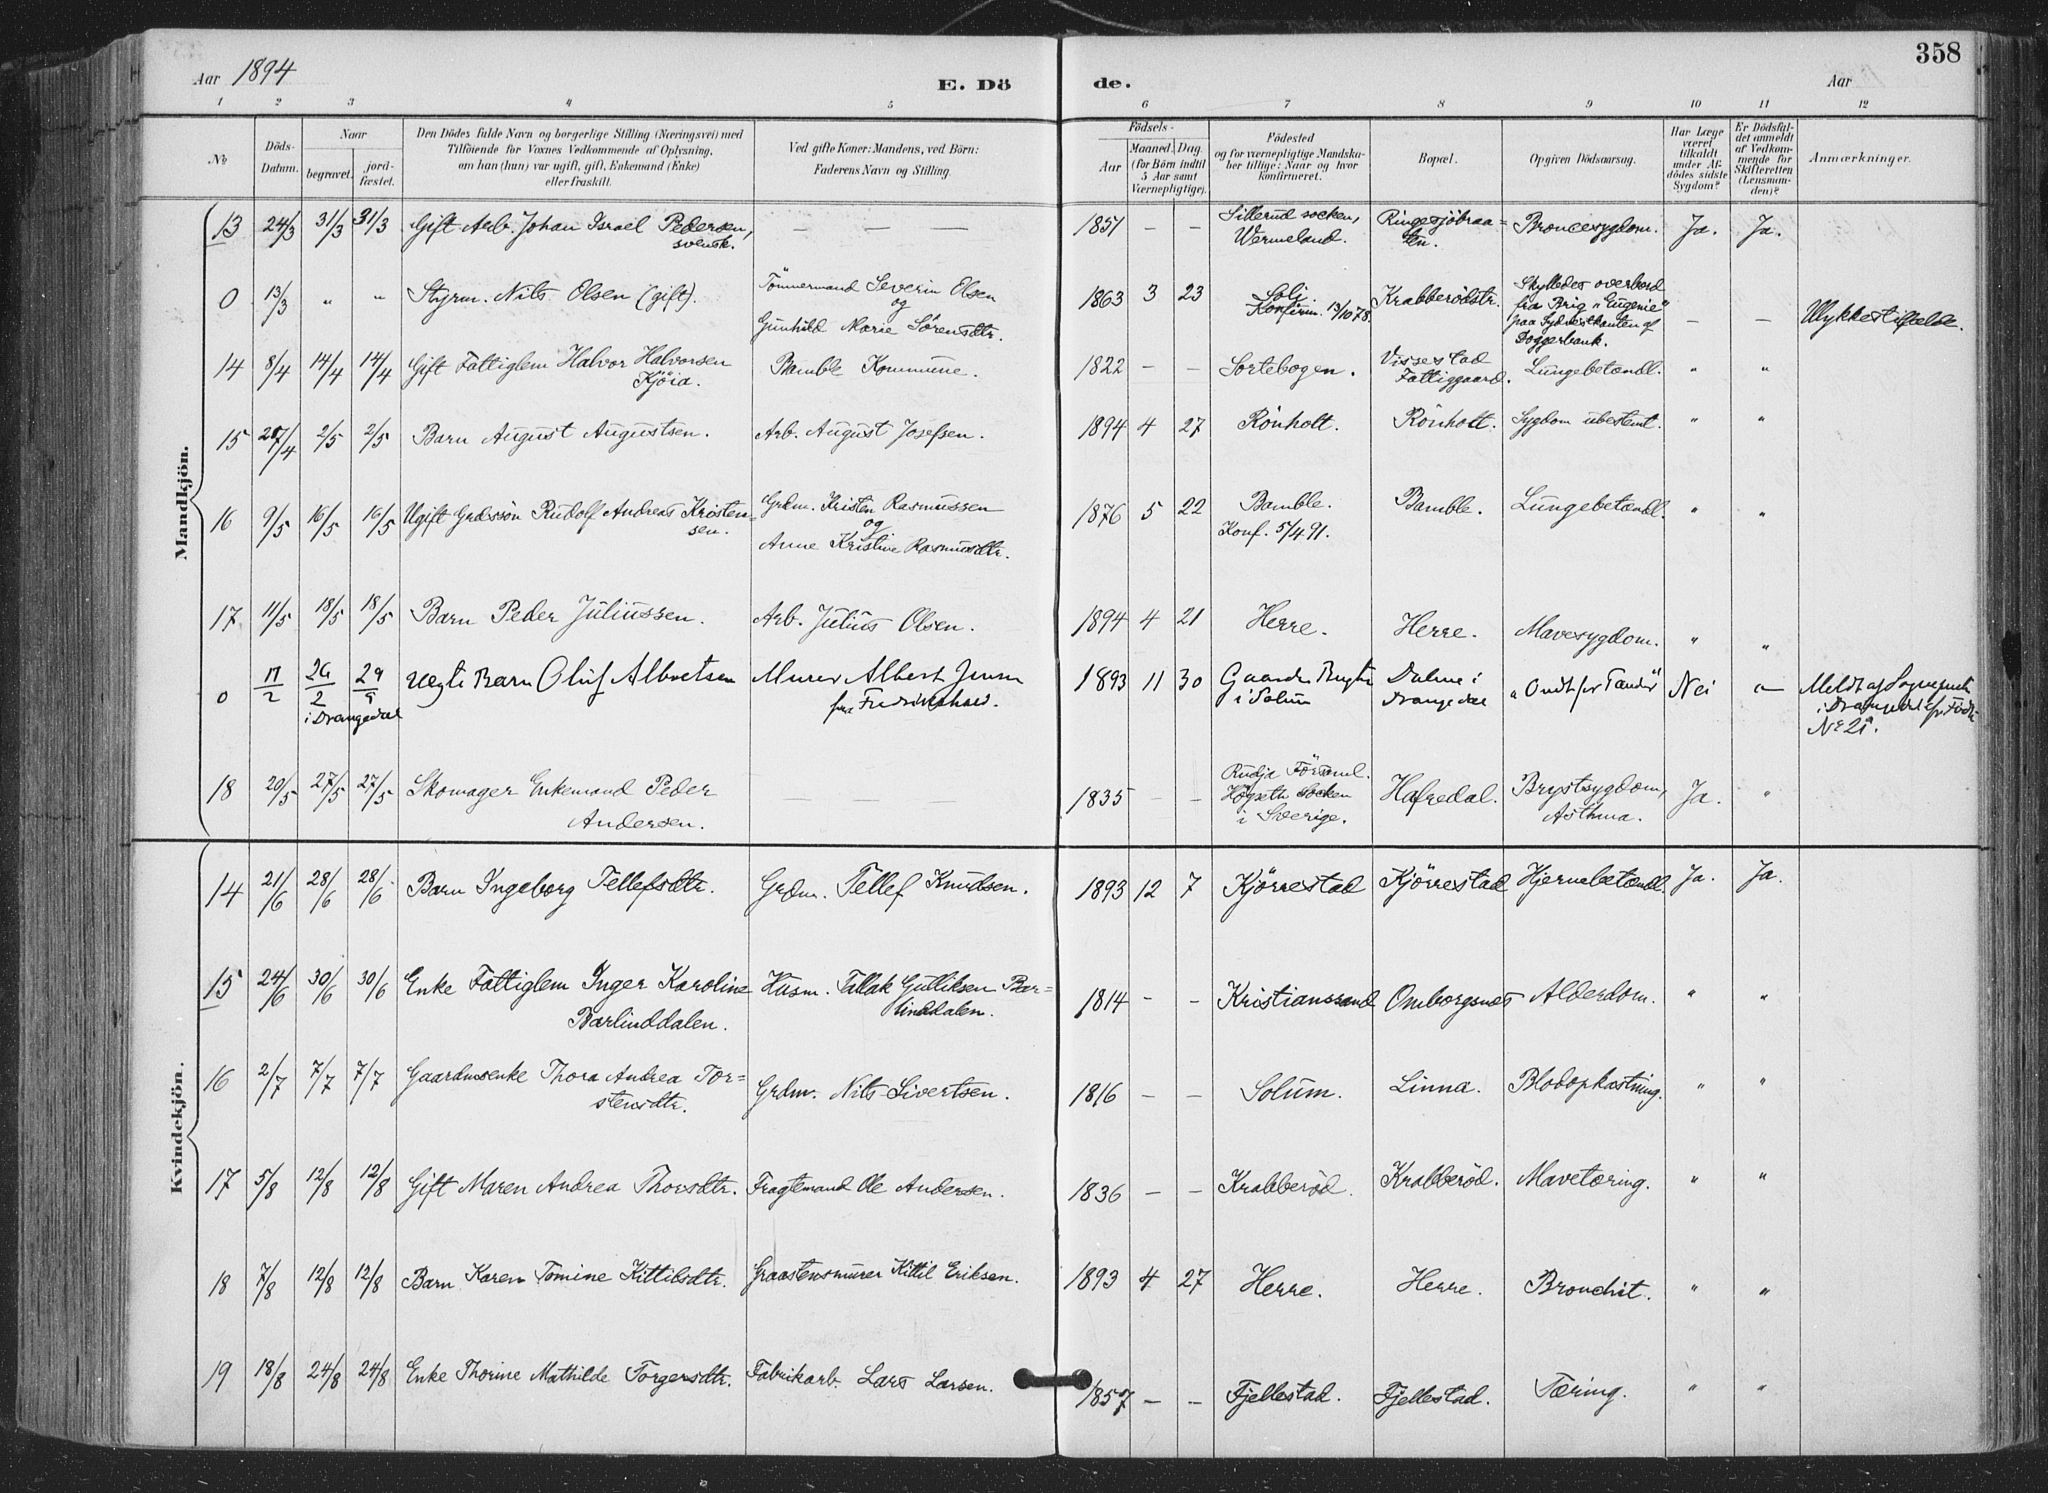 Aar 1894
E. Dö
de.
Aar
358
1 2 3 4 5 6 7 8 9 10 11 12
No
Döds-Datum.
Naar
begravet.
jordfæstet.
Den Dödes fulde Navn og borgerlige Stilling (Næringsvei) med
Tilföiende for Voxnes Vedkommende af Oplysning,
om han (hun) var ugift, gift, Enkemand (Enke)
eller fraskilt.
Ved gifte Koner: Mandens, ved Börn:
Faderens Navn og Stilling.
Födsels-
Aar
Maaned. Dag.
(for Börn indtil
5 Aar samt
Værnepligtige).
Födested
og for værnepligtige Mandskaber
tillige: Naar og hvor
konfirmeret.
Bopæl.
Opgiven Dödsaarsag.
Har Læge
været
tilkaldt
under Afdödes
sidste
Sygdom?
Er Dödsfaldet
anmeldt
af Vedkommende
for
Skifteretten
(Lensmanden)?
Anmærkninger.
Mandkjön.
13 24/3 31/3 31/3 Gift Arb. Johan Israel Pedersen, svensk. — — — 1851 — — Sillerud socken, Wermeland. Ringesjöbraaten. Broncesygdom. Ja. Ja.
0 13/3 " " Styrm. Nils Olsen (gift). Tömmermand Severin Olsen og Gunhild Marie Sörensdtr. 1863 3 23 Konfirm. 13/10 78. Krabberödstr. Skylledes overbord fra Brig "Eugenie" paa Sydvestkanten af Doggerbank. — — Ulykkestilfælde.
14 8/4 14/4 14/4 Gift Fattiglem Halvor Halvorsen Kjöia. Bamble Kommune. 1822 — — Sortebogen. Vissestad Fattiggaard. Lungebetændl. " "
15 27/4 2/5 2/5 Barn August Augustsen. Arb. August Josefsen. 1894 4 27 Rönholt. Rönholt. Sygdom ubestemt. " "
16 9/5 16/5 16/5 Ugift Grdssön Rudolf Andreas Kristensen. Grdm. Kristen Rasmussen og Anne Kristine Rasmusdtr. 1876 5 22 Bamble. Konf. 5/4 91. Bamble. Lungebetændl. " "
17 11/5 18/5 18/5 Barn Peder Juliussen. Arb. Julius Olsen. 1894 4 21 Herre. Herre. Mavesygdom. " "
0 17/2 26/2 i Drangedal Uegte Barn Oluf Albretsen Murer Albert Jensen fra Fredrikshald. 1893 11 30 i Solum i Drangedal "Ondt for Tænder" Nei Meldt af Sognepræst i Drangedal
18 20/5 27/5 27/5 Skomager Enkemand Peder Andersen. — — 1835 — — i Sverige. Hafredal. Brystsygdom, Asthma. Ja. "
Kvindekjön.
14 21/6 28/6 28/6 Barn Ingeborg Tellefsdtr. Grdm. Tellef Knudsen. 1893 12 7 Kjörrestad Kjörrestad Hjernebetændl. Ja. Ja.
15 24/6 30/6 30/6 Enke Fattiglem Inger Karoline Barlinddalen. Husm. Tallak Gulliksen Barlinddalen. 1814 — — Kristianssand Omborgsnes Alderdom. " "
16 2/7 7/7 7/7 Gaardmsenke Thora Andrea Torstensdtr. Grdm. Nils Sivertsen. 1816 — — Solum. Linna. Blodopkastning. " "
17 5/8 12/8 12/8 Gift Maren Andrea Thorsdtr. Fragtemand Ole Andersen. 1836 — — Krabberöd. Krabberöd. Mavetæring. " "
18 7/8 12/8 12/8 Barn Karen Tomine Kittilsdtr. Graastensmurer Kittil Eriksen. 1893 4 27 Herre. Herre. Bronchit. " "
19 18/8 24/8 24/8 Enke Thorine Mathilde Torgersdtr. Fabrikarb. Lars Larsen. 1857 — — Fjellestad. Fjellestad. Tæring. " "